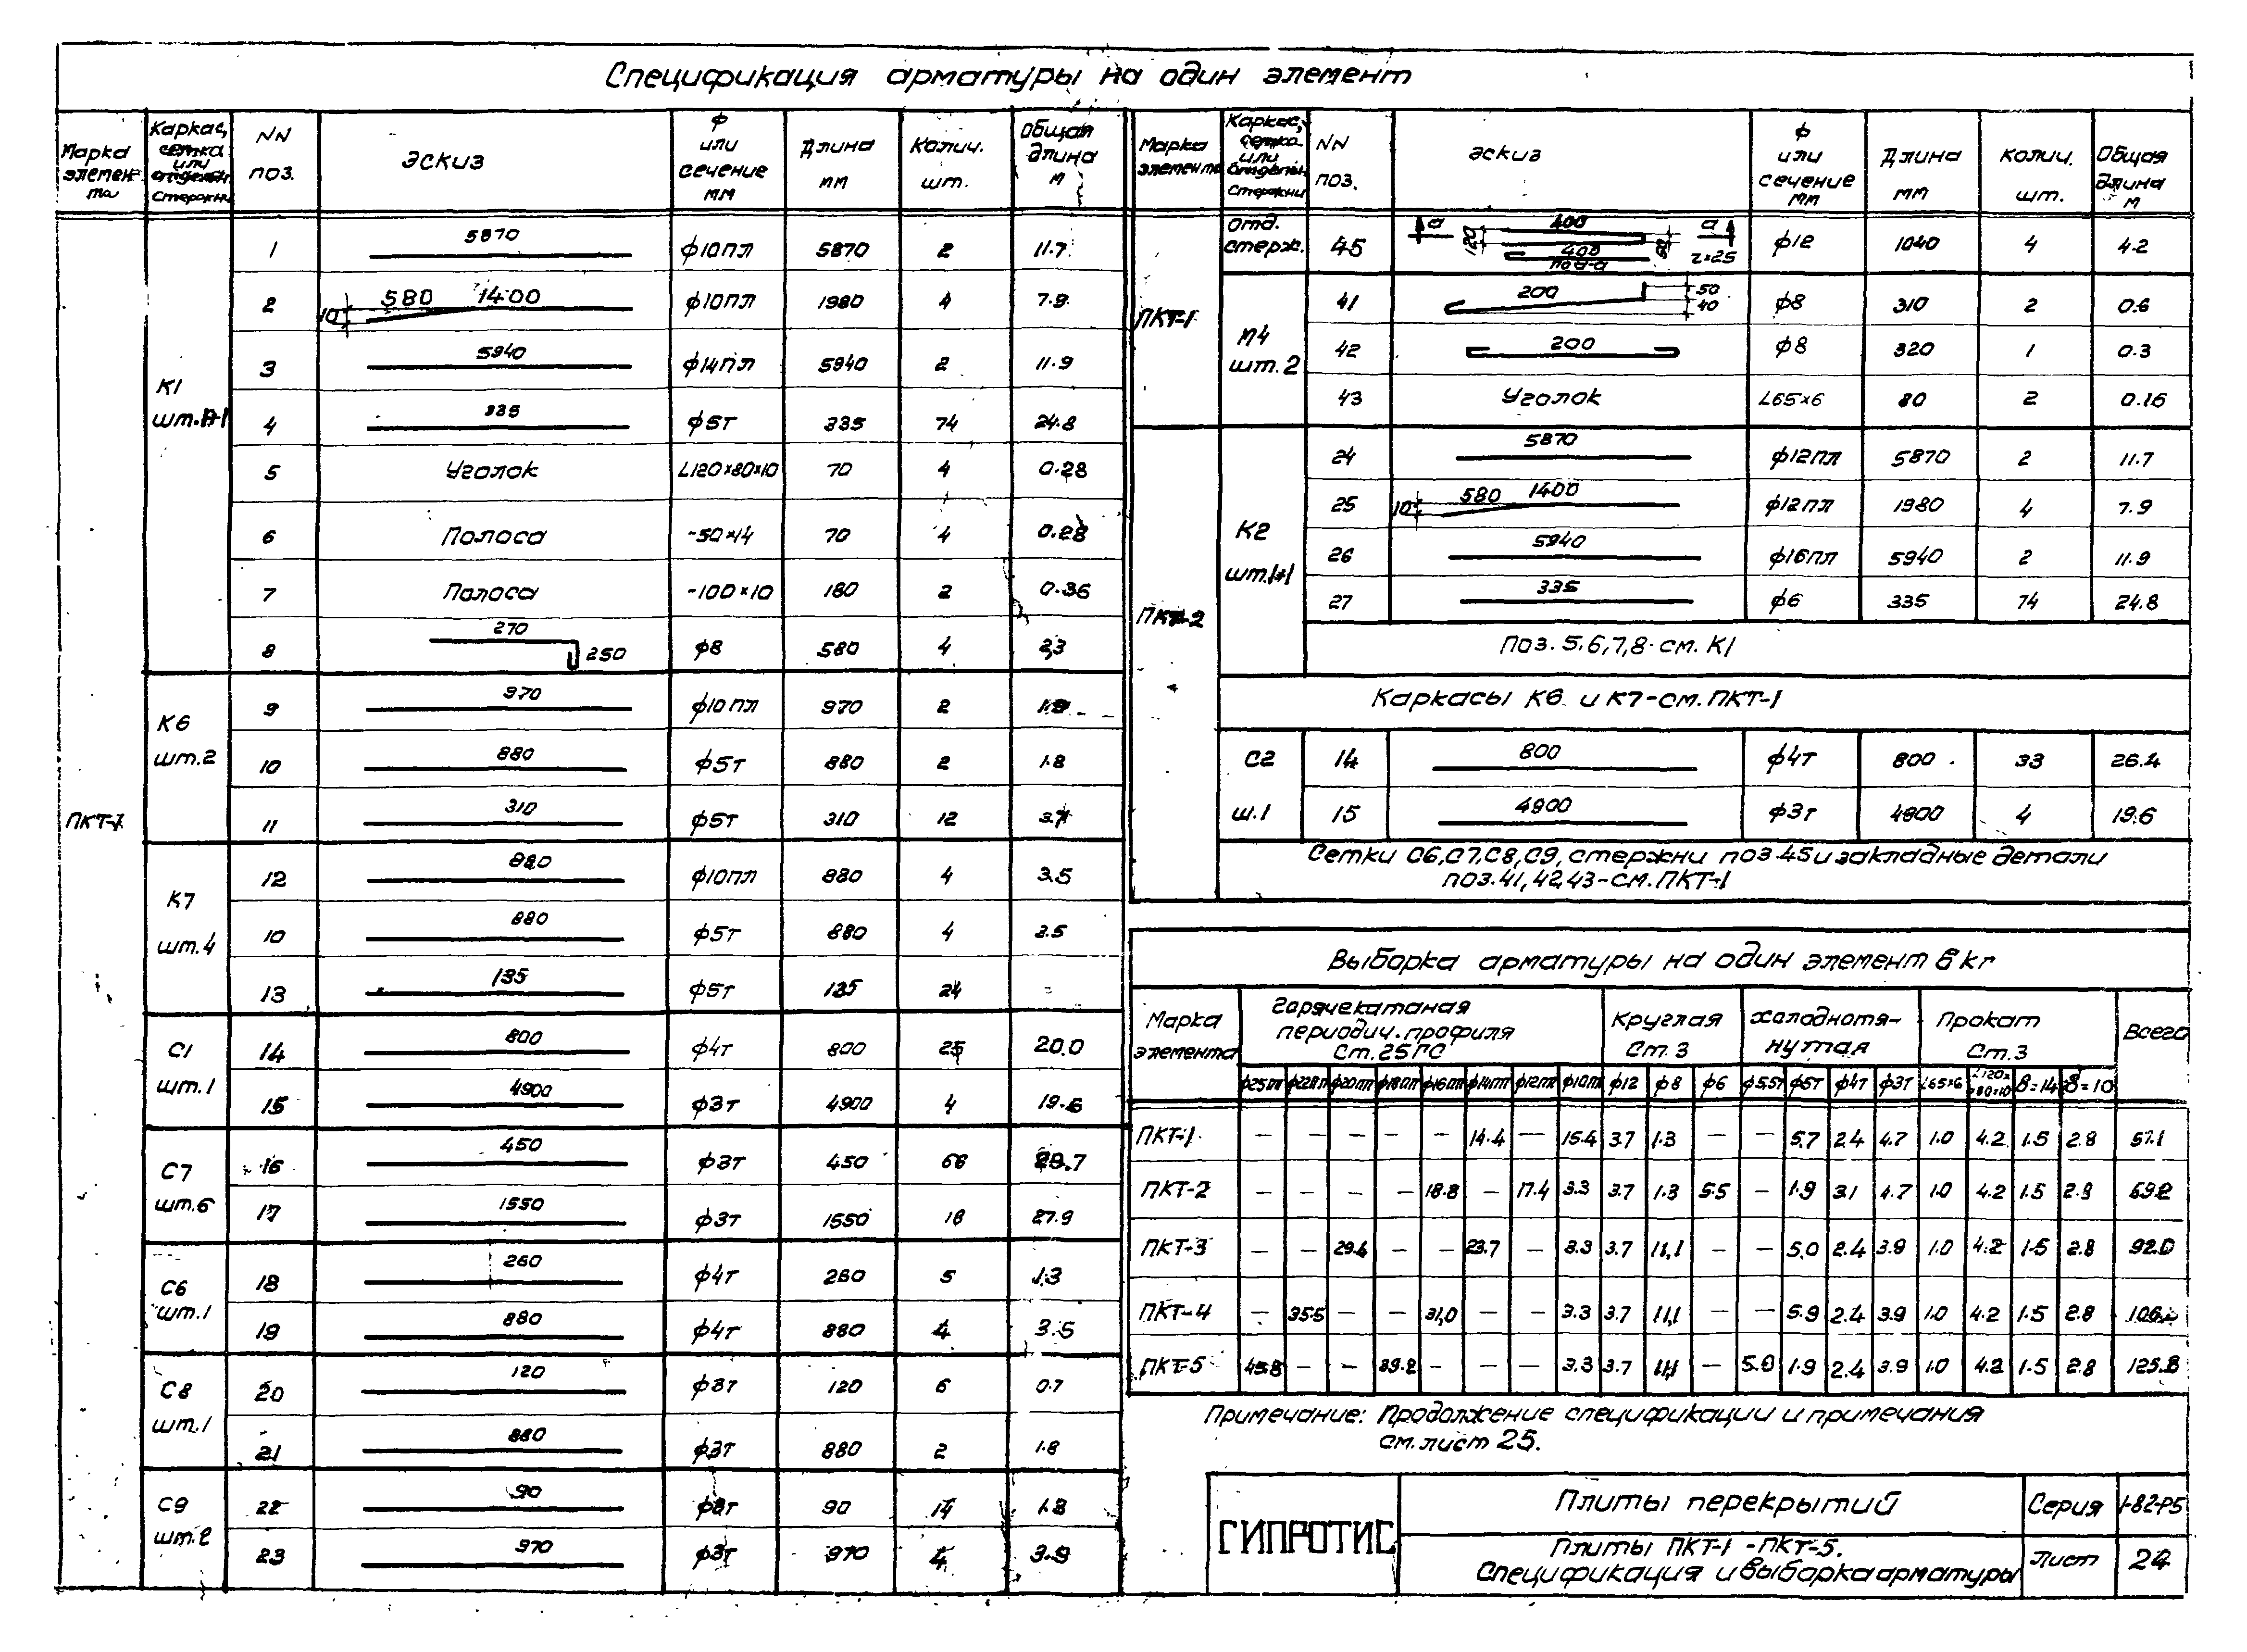 Спецификация арматуры на один элемент
Марка элемен та | Каркас, сетка или отдельн. стержни | NN поз. | Эскиз | ф или сечение мм | Длина мм | Колич. шт. | Общая длина м
ПКТ-1
К1 шт.1+1
1 | 5870 | ф10пл | 5870 | 2 | 11.7
2 | 10 580 1400 | ф10пл | 1980 | 4 | 7.9
3 | 5940 | ф14пл | 5940 | 2 | 11.9
4 | 335 | ф5т | 335 | 74 | 24.8
5 | Уголок | L120×80×10 | 70 | 4 | 0.28
6 | Полоса | -50×14 | 70 | 4 | 0.28
7 | Полоса | -100×10 | 180 | 2 | 0.36
8 | 270 250 | ф8 | 580 | 4 | 2,3
К6 шт.2
9 | 970 | ф10пл | 970 | 2
10 | 880 | ф5т | 880 | 2 | 1.8
11 | 310 | ф5т | 310 | 12 | 3.7
К7 шт.4
12 | 880 | ф10пл | 880 | 4 | 3.5
10 | 880 | ф5т | 880 | 4 | 3.5
13 | 135 | ф5т | 135 | 24
С1 шт.1
14 | 800 | ф4т | 800 | 25 | 20.0
15 | 4900 | ф3т | 4900 | 4 | 19.6
С7 шт.6
16 | 450 | ф3т | 450 | 66 | 29.7
17 | 1550 | ф3т | 1550 | 18 | 27.9
С6 шт.1
18 | 260 | ф4т | 260 | 5 | 1.3
19 | 880 | ф4т | 880 | 4 | 3.5
С8 шт.1
20 | 120 | ф3т | 120 | 6 | 0.7
21 | 880 | ф3т | 880 | 2 | 1.8
С9 шт.2
22 | 90 | ф3т | 90 | 14 | 1.3
23 | 970 | ф3т | 970 | 4 | 3.9
Марка элемента | Каркас, сетка или отдельн. стержни | NN поз. | Эскиз | ф или сечение мм | Длина мм | Колич. шт. | Общая длина м
ПКТ-1
Отд. стерж. | 45 | а 120 400 400 по а-а 80 а r=25 | ф12 | 1040 | 4 | 4.2
М4 шт.2
41 | 200 50 40 | ф8 | 310 | 2 | 0.6
42 | 200 | ф8 | 320 | 1 | 0.3
43 | Уголок | L65×6 | 80 | 2 | 0.16
ПКТ-2
К2 шт.1+1
24 | 5870 | ф12пл | 5870 | 2 | 11.7
25 | 10 580 1400 | ф12пл | 1980 | 4 | 7.9
26 | 5940 | ф16пл | 5940 | 2 | 11.9
27 | 335 | ф6 | 335 | 74 | 24.8
Поз. 5,6,7,8 - см. К1
Каркасы К6 и К7-см. ПКТ-1
С2 ш.1
14 | 800 | ф4т | 800 | 33 | 26.4
15 | 4900 | ф3т | 4900 | 4 | 19.6
Сетки С6, С7, С8, С9, стержни поз 45 и закладные детали
поз. 41, 42,43-см. ПКТ-1
Выборка арматуры на один элемент в kг
Марка элемента | Горячекатаная периодич. профиля Ст. 25ГС | Круглая Ст. 3 | Холоднотянутая | Прокат Ст.3 | Всего
ф25пл | ф22пл | ф20пл | ф18пл | ф16пл | ф14пл | ф12пл | ф10пл | ф12 | ф8 | ф6 | ф5.5т | ф5т | ф4т | ф3т | L65×6 | L120×80×10 | δ=14 | δ=10
ПКТ-1 | — | — | — | — | — | 14.4 | — | 15.4 | 3.7 | 1.3 | — | — | 5.7 | 2.4 | 4.7 | 1.0 | 4.2 | 1.5 | 2.8 | 57.1
ПКТ-2 | — | — | — | — | 18.8 | — | 17.4 | 3.3 | 3.7 | 1.3 | 5.5 | — | 1.9 | 3.1 | 4.7 | 1.0 | 4.2 | 1.5 | 2.9 | 69.2
ПКТ-3 | — | — | 29.4 | — | — | 23.7 | — | 3.3 | 3.7 | 11,1 | — | — | 5.0 | 2.4 | 3.9 | 1.0 | 4.2 | 1.5 | 2.8 | 92.0
ПКТ-4 | — | 35.5 | — | — | 31,0 | — | — | 3.3 | 3.7 | 11,1 | — | — | 5.9 | 2.4 | 3.9 | 1.0 | 4.2 | 1.5 | 2.8
ПКТ-5 | 45.8 | — | — | 39.2 | — | — | — | 3.3 | 3.7 | 11,1 | — | 5.0 | 1.9 | 2.4 | 3.9 | 1.0 | 4.2 | 1.5 | 2.8 | 125.8
Примечание: Продолжение спецификации и примечания
см. лист 25.
ГИПРОТИС
Плиты перекрытий
Серия 1-82-Р5
Плиты ПКТ-1 - ПКТ-5.
Спецификация и выборка арматуры
Лист 24